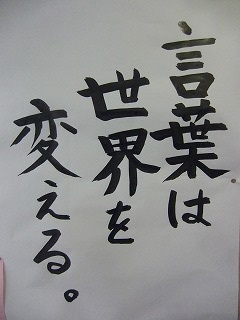 言葉は
世界を
変える。